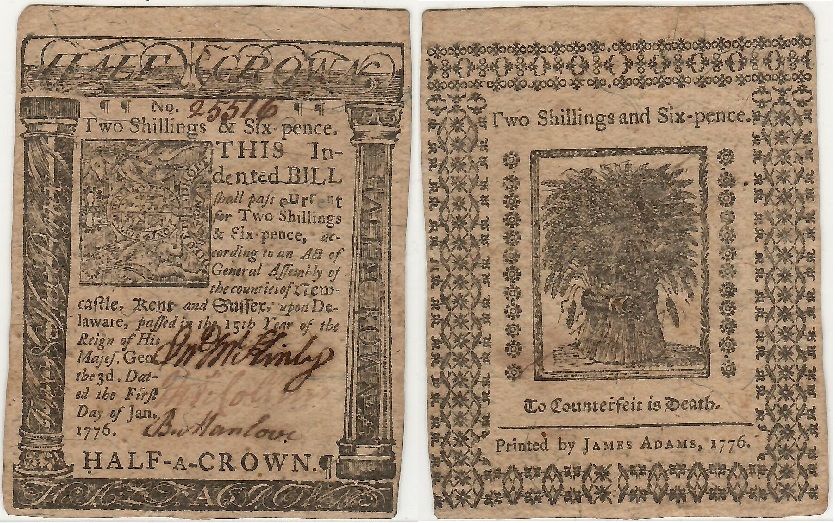 HALF CROWN
No. 25516
Two Shillings & Six-pence.
THIS In-
dented BILL
shall pass current
for Two Shillings
& Six-pence, ac-
cording to an Act of
General Assembly of
the counties of New-
castle, Kent and Sussex, upon De-
laware, passed in the 15th Year of the
Reign of His
Majes. Geo.
the 3d. Dat-
ed the First
Day of Jan.
1776.
HALF-A-CROWN.
Two Shillings and Six-pence.
To Counterfeit is Death.
Printed by JAMES ADAMS, 1776.